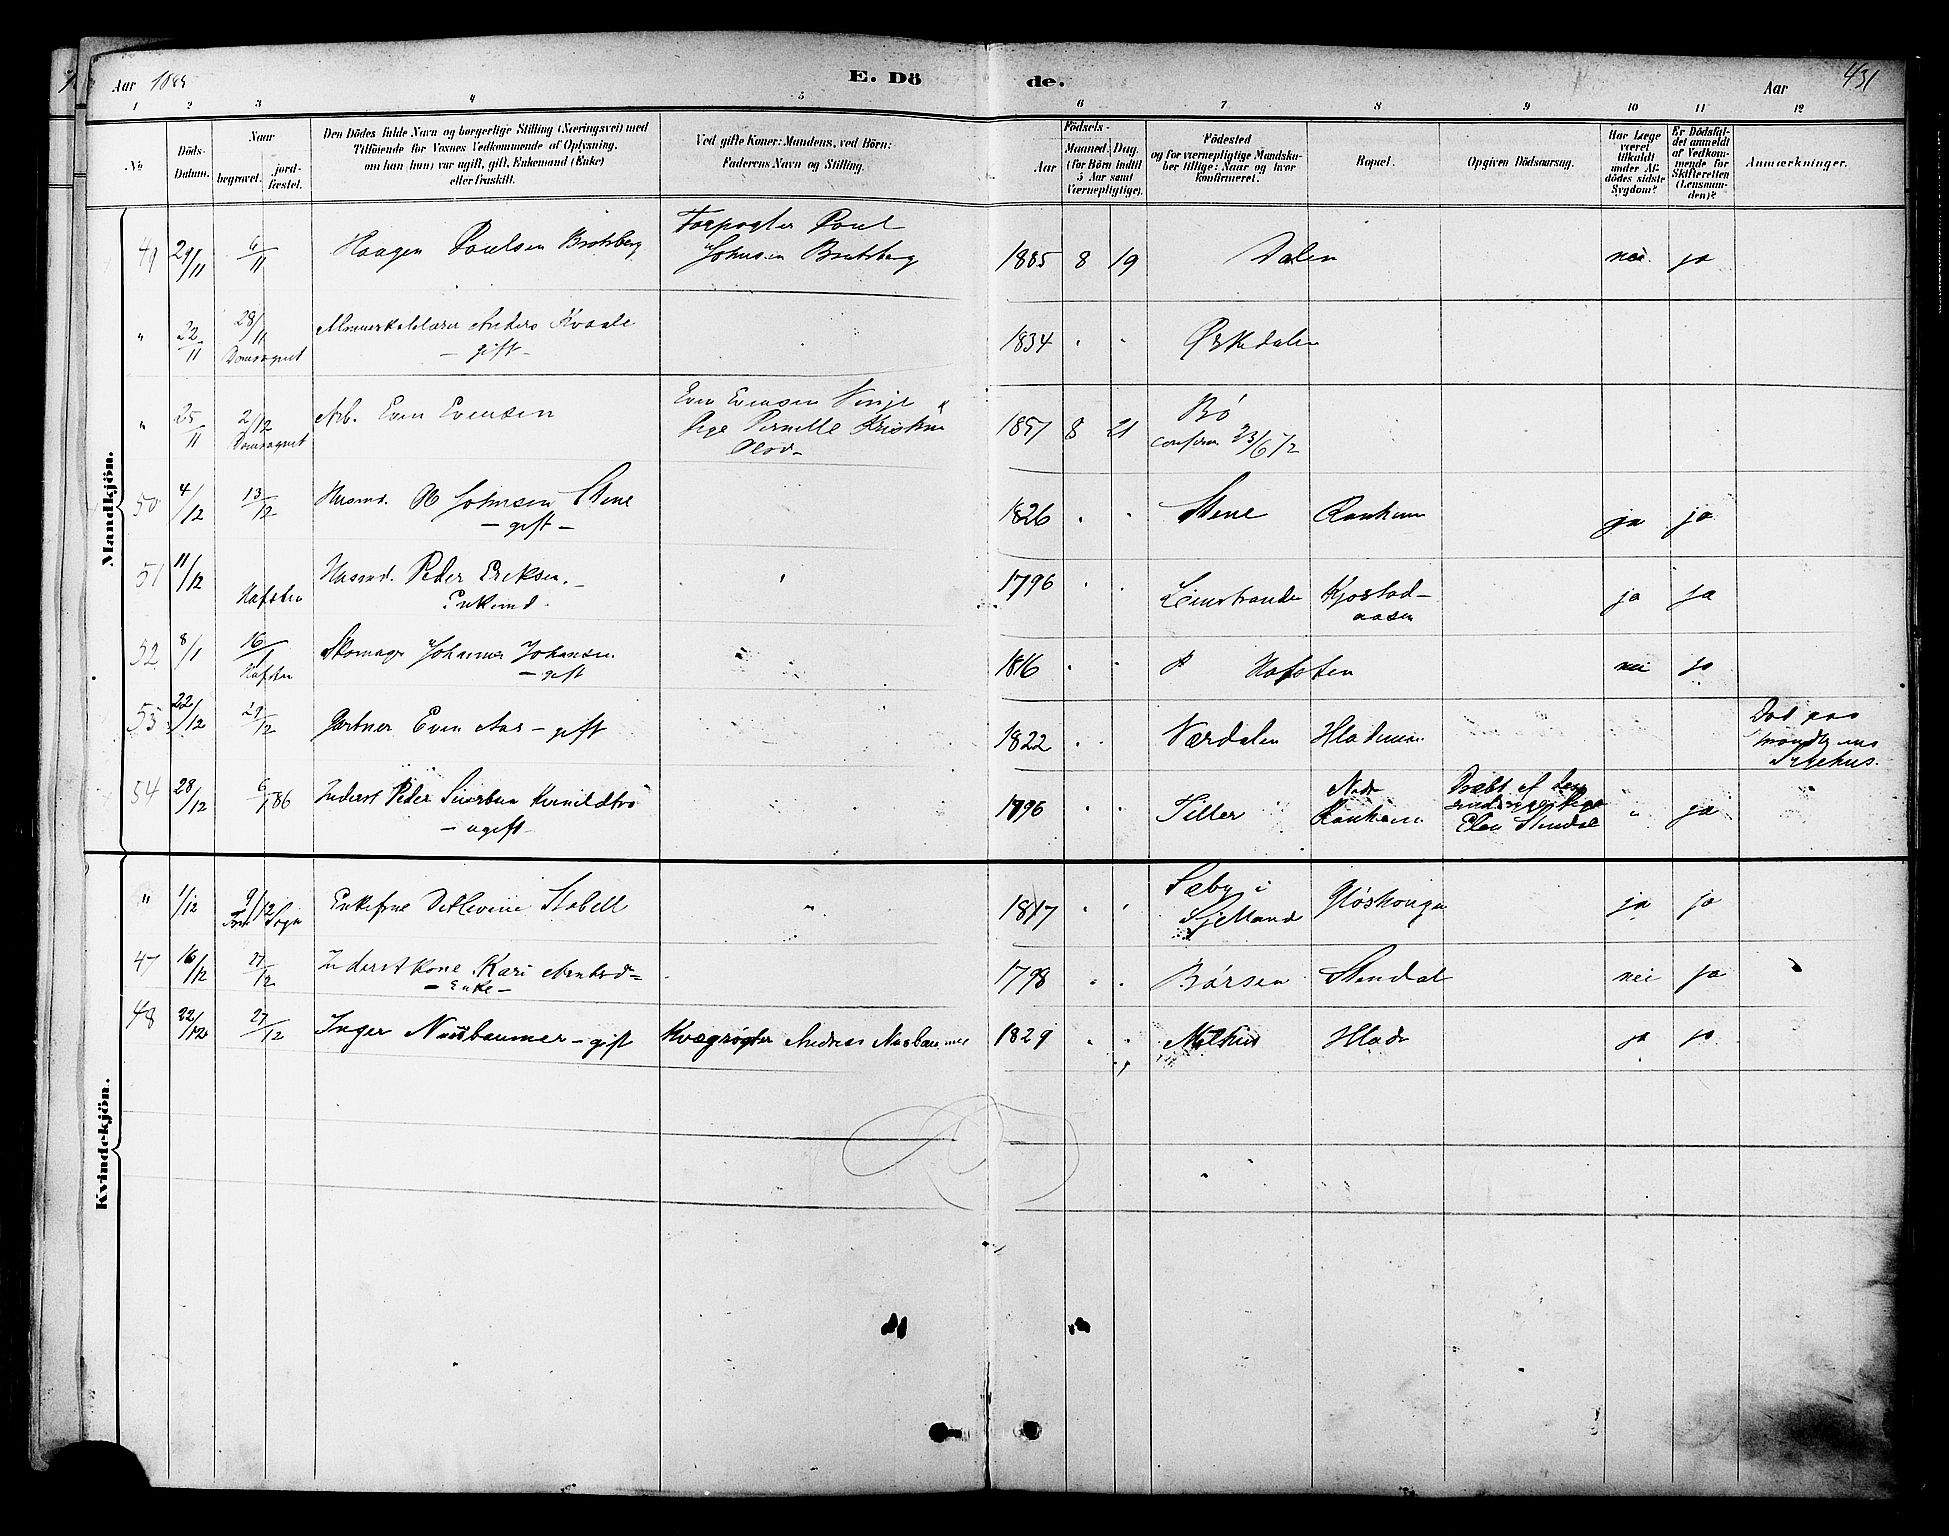 Aar 1885
E. Dö
de.
Aar
431
1 2 3 4 5 6 7 8 9 10 11 12
No
Döds-Datum.
Naar
begravet.
jord-fæstet.
Den Dödes fulde Navn og borgerlige Stilling (Næringsvei) med
Tilföiende for Voxnes Vedkommende af Oplysning,
om han (hun) var ugift, gift, Enkemand (Enke)
eller fraskilt.
Ved gifte Koner: Mandens, ved Börn:
Faderens Navn og Stilling.
Födsels-
Aar
Maaned. Dag.
(for Börn indtil
5 Aar samt
Værnepligtige).
Födested
og for værnepligtige Mandska-
ber tillige: Naar og hvor
konfirmeret.
Bopæl.
Opgiven Dödsaarsag.
Har Læge
været
tilkaldt
under Af-
dödes sidste
Sygdom?
Er Dödsfal-
det anmeldt
af Vedkom-
mende for
Skifteretten
(Lensman-
den)?
Anmærkninger.
Mandkjön.
49 29/11 6/11 Haagen Poulsen Bratsberg
Forpagter Poul
Johnsen Bratsberg
1885 8 19 Dalen nei ja
" 22/11 28/11 Domsognet
Anders Kvaale
- gift -
1834 " " Ørkedalen
" 25/11 2/12 Domsognet
Arb. Even Evensen
Even Evensen Vinje &
Pige Pernille Kristine
Olsd-
1857 8 21 Bö
confirm 23/6 72
50 4/12 13/12 Husmd. O Johnsen Stene
- gift -
1826 " " Stene Ranheim ja ja
51 11/12 Hafsten
Husmd. Peder Eriksen -
Enkemd.
" 1796 " " Leinstranden Kjøstad-
aasen
ja ja
52 8/1 16/1 Hafsten
Skomager Johannes Johansen
- gift
" 1816 " " Hafsten nei ja
53 22/12 29/12 Gartner Even Aas - gift
1822 " " Værdalen Hladem.
Död paa
Trondhjems
Sygehus.
54 28/12 6/1 86 Inderst Peder Sivertsen Kvnildtrö
- ugift -
1796 " " Tiller
Nedr
Ranheim
Dræbt af
Pige
Elen Stendal
" ja
Kvindekjön.
" 1/12 9/12 Sogn
Enkefrue Detlevine Stabell
" 1817 " " Sæby i
Sjelland
Gløshaugen ja ja
47 16/12 27/12 Inderstkone Kari Arntsd-
- Enke -
1798 " " Börsen Stendal nei ja
48 22/12 27/12 Inger Nusbaumer - gift Kvægrøgter Andreas Nusbaumer 1829 " " Melhus Hlade ja ja